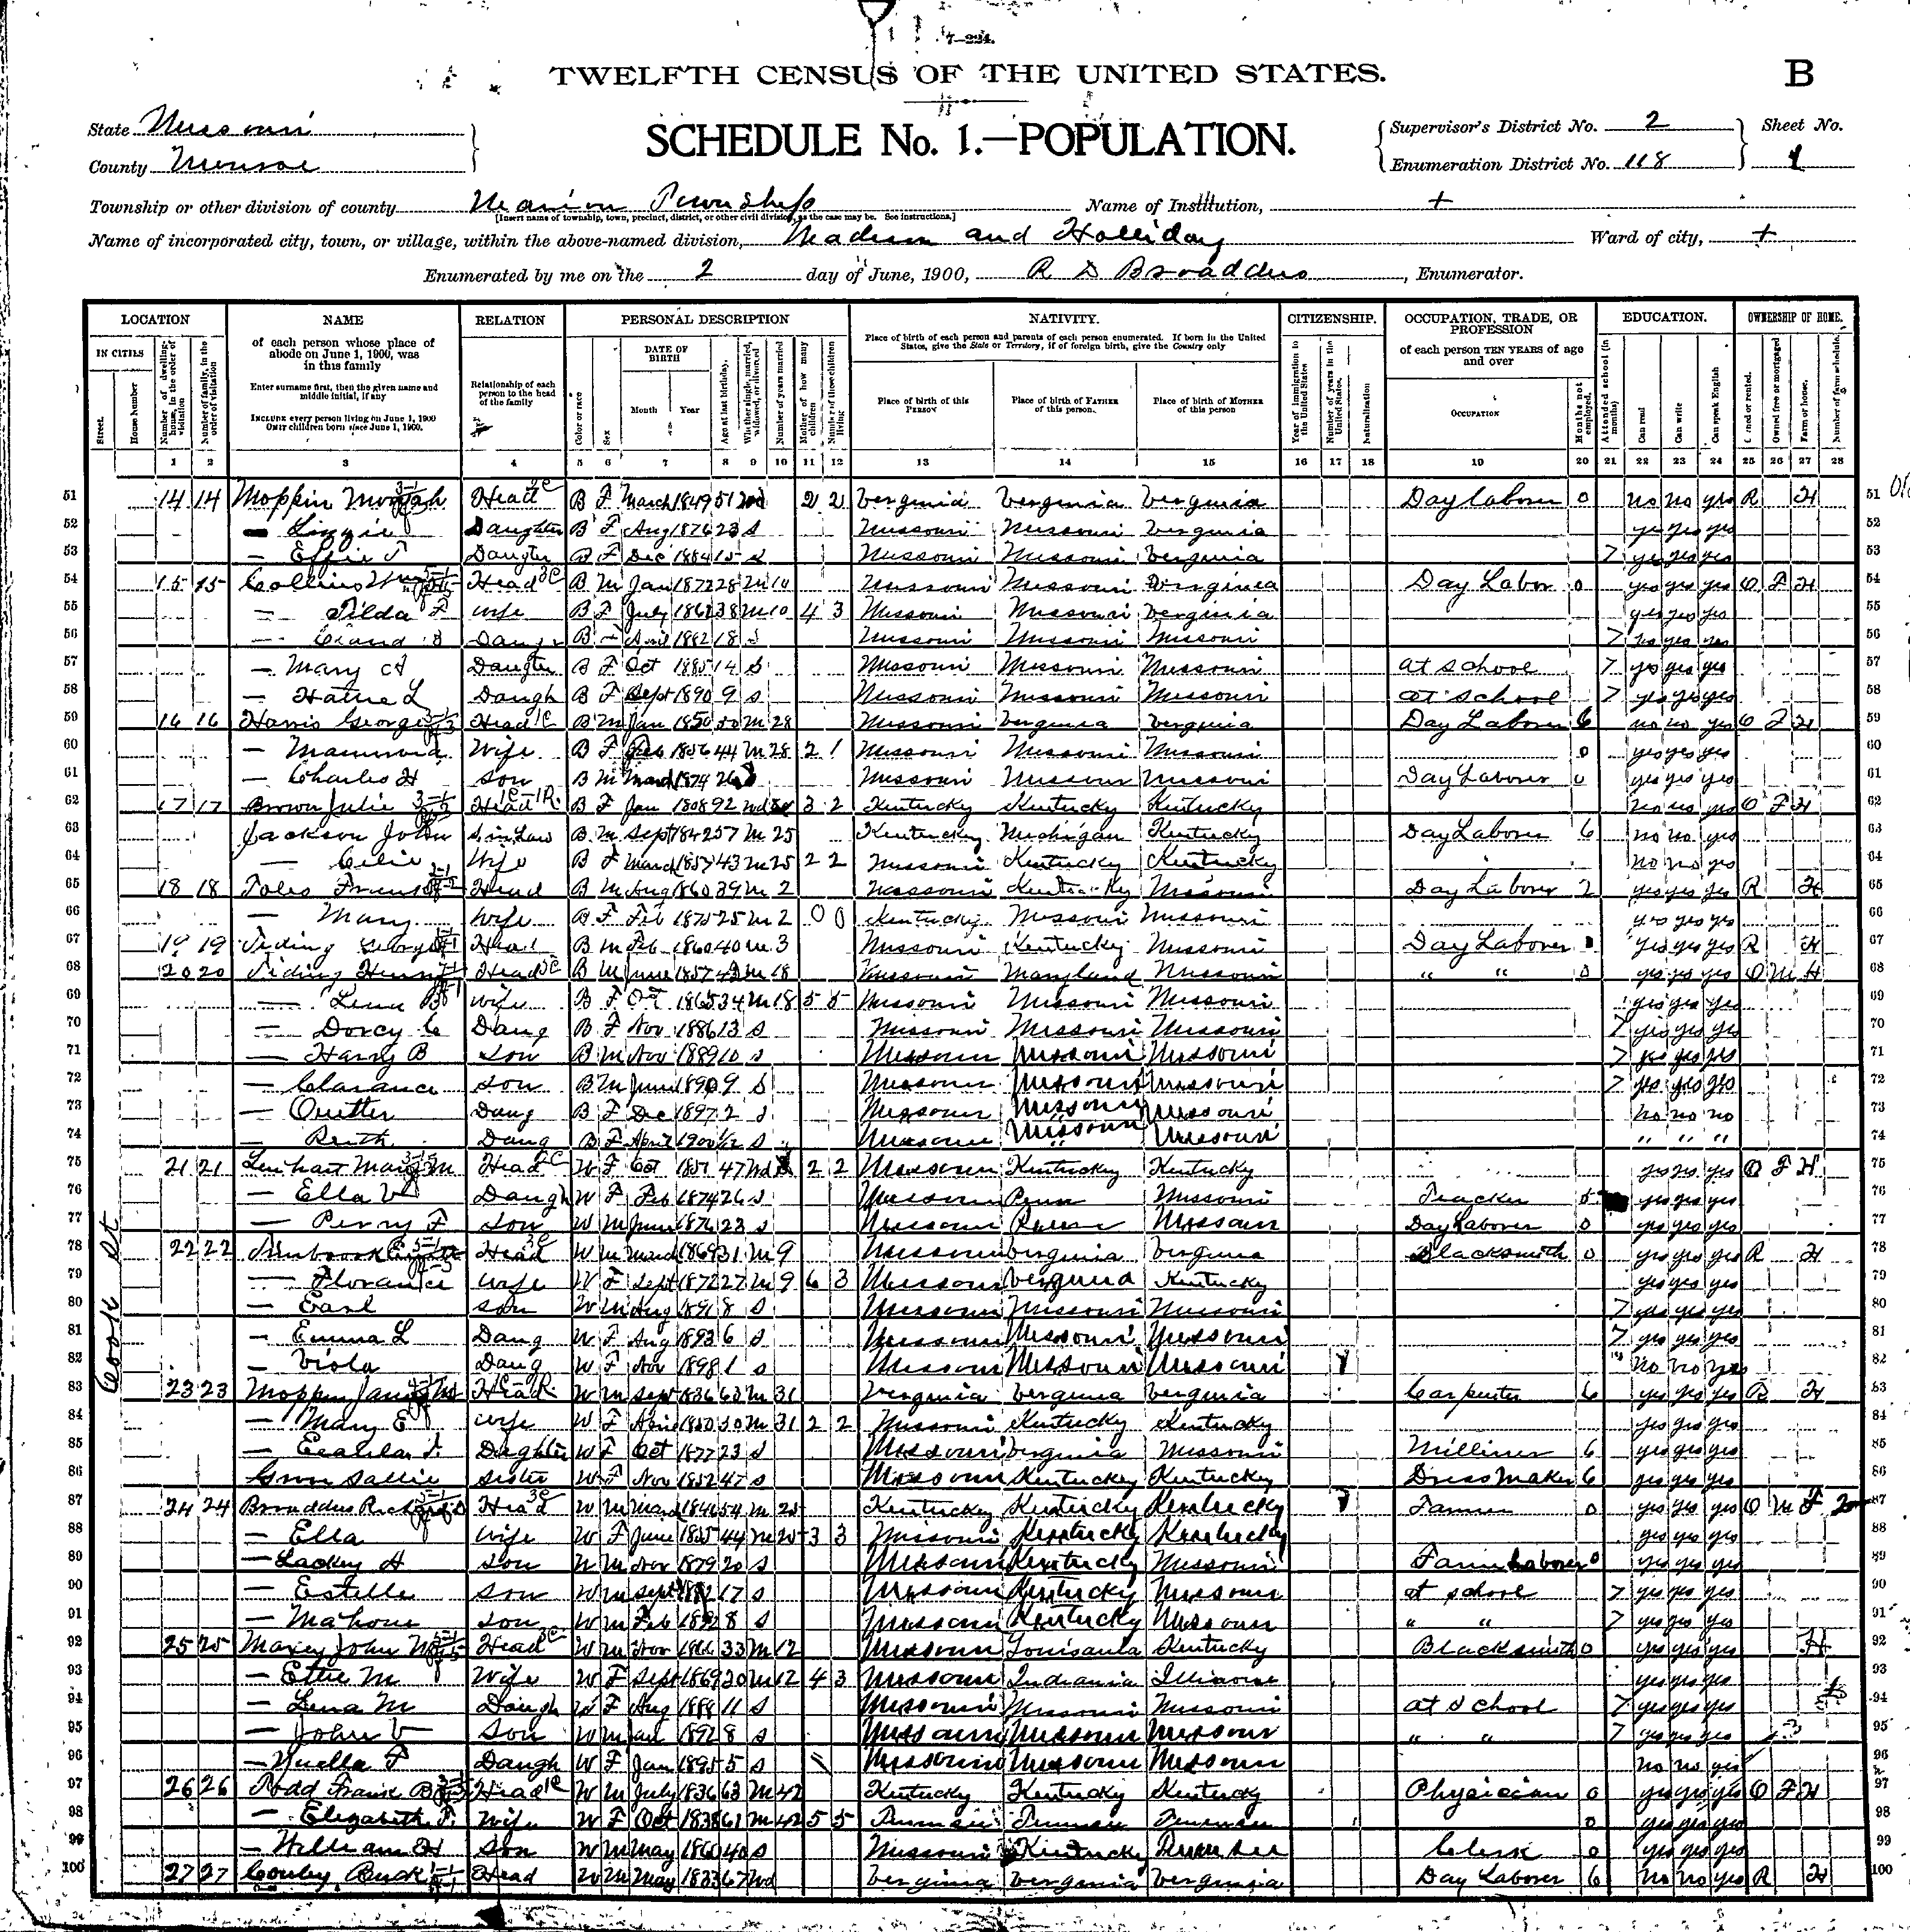 7-224.
TWELFTH CENSUS OF THE UNITED STATES.
B
State Missouri
SCHEDULE No. 1.—POPULATION.
Supervisor's District No. 2
Sheet No.
County Monroe
Enumeration District No. 118
Township or other division of county Marion Township
Name of Institution, +
[Insert name of township, town, precinct, district, or other civil division, as the case may be. See instructions.]
Name of incorporated city, town, or village, within the above-named division, Madison and Holliday
Ward of city, +
Enumerated by me on the 2 day of June, 1900, R D Broaddus, Enumerator.
LOCATION NAME RELATION PERSONAL DESCRIPTION NATIVITY. CITIZENSHIP. OCCUPATION, TRADE, OR PROFESSION EDUCATION. OWNERSHIP OF HOME.
IN CITIES
Street.
House number
Number of dwelling-house, in the order of visitation
Number of family, in the order of visitation
of each person whose place of abode on June 1, 1900, was in this family
Enter surname first, then the given name and middle initial, if any
INCLUDE every person living on June 1, 1900
OMIT children born since June 1, 1900.
Relationship of each person to the head of the family
Color or race
Sex
DATE OF BIRTH
Month Year
Age at last birthday.
Whether single, married, widowed, or divorced
Number of years married
Mother of how many children
Number of these children living
Place of birth of each person and parents of each person enumerated. If born in the United States, give the State or Territory, if of foreign birth, give the Country only
Place of birth of this PERSON
Place of birth of FATHER of this person.
Place of birth of MOTHER of this person
Year of immigration to the United States
Number of years in the United States.
Naturalization
of each person TEN YEARS of age and over
OCCUPATION
Months not employed.
Attended school (in months)
Can read
Can write
Can speak English
Owned or rented.
Owned free or mortgaged
Farm or house.
Number of farm schedule.
1 2 3 4 5 6 7 8 9 10 11 12 13 14 15 16 17 18 19 20 21 22 23 24 25 26 27 28
51 14 14 Moppin Head B F March 1849 51 wd 2 2 Verginia Verginia Verginia Day Labourer 0 no no yes R H 51
52 — Lizzie Daughter B F Aug 1876 23 S Missouri Missouri Verginia yes yes yes 52
53 — Effie Daugter B F Dec 1884 15 S Missouri Missouri Verginia 7 yes yes yes 53
54 15 15 Collins Wm Head B M Jan 1872 28 M 10 Missouri Missouri Verginia Day Labor 0 yes yes yes O F H 54
55 — Tilda F wife B F July 1862 38 M 10 4 3 Missouri Missouri Verginia yes yes yes 55
56 — B April 1882 18 S Missouri Missouri Missouri 7 yes yes yes 56
57 — Mary A Daugter B F Oct 1885 14 S Missouri Missouri Missouri at school 7 yes yes yes 57
58 — Hattie L Daugh B F Sept 1890 9 S Missouri Missouri Missouri at school 7 yes yes yes 58
59 16 16 Harris George Head B M Jan 1850 50 M 28 Missouri Verginia Verginia Day Laborer 6 no no yes O F H 59
60 — Wife B F Feb 1856 44 M 28 2 1 Missouri Missouri Missouri 0 yes yes yes 60
61 — Charles H Son B M March 1874 26 S Missouri Missouri Missouri Day Laborer 0 yes yes yes 61
62 17 17 Brown Julie Head B F Jan 1808 92 wd 3 2 Kentucky Kentucky Kentucky no no yes O F H 62
63 Jackson John S in Law B M Sept 1842 57 M 25 Kentucky Michigan Kentucky Day Laborer 6 no no yes 63
64 — Celie Wife B F March 1857 43 M 25 2 2 Missouri Kentucky Kentucky no no yes 64
65 18 18 Head B M Aug 1860 39 M 2 Missouri Kentucky Missouri Day Laborer 2 yes yes yes R H 65
66 — Mary wife B F Feb 1875 25 M 2 0 0 Kentucky Missouri Missouri yes yes yes 66
67 19 19 Tiding Head B M Feb 1860 40 M 3 Missouri Kentucky Missouri Day Laborer yes yes yes R H 67
68 20 20 Tiding Henry Head B M June 1857 42 M 18 Missouri Maryland Missouri " " 0 yes yes yes O M H 68
69 — wife B F Oct 1865 34 M 18 5 5 Missouri Missouri Missouri yes yes yes 69
70 — Dorcy C Daug B F Nov 1886 13 S Missouri Missouri Missouri 7 yes yes yes 70
71 — Harry B Son B M Nov 1889 10 S Missouri Missouri Missouri 7 yes yes yes 71
72 — Clarance Son B M June 1890 9 S Missouri Missouri Missouri 7 yes yes yes 72
73 — Daug B F Dec 1897 2 S Missouri Missouri Missouri no no no 73
74 — Ruth Daug B F April 1900 1/12 S Missouri Missouri Missouri " " " 74
75 21 21 Head W F Oct 47 Wd 2 2 Missouri Kentucky Kentucky yes yes yes O F H 75
76 — Ella V Daugh W F Feb 1874 26 S Missouri Penn Missouri Teacher 5 yes yes yes 76
77 — Perry F Son W M June 1876 23 S Missouri Missouri Day Laborer 0 yes yes yes 77
78 22 22 Head W M March 1869 31 M 9 Missouri Verginia Verginia Blacksmith 0 yes yes yes R H 78
79 — Florance wife W F Sept 1872 27 M 9 6 3 Missouri Verginia Kentucky yes yes yes 79
80 — Earl Son W M Aug 1891 8 S Missouri Missouri Missouri 7 yes yes yes 80
81 — Emma L Daug W F Aug 1893 6 S Missouri Missouri Missouri 7 yes yes yes 81
82 — Viola Daug W F Nov 1898 1 S Missouri Missouri Missouri no no yes 82
Cook St
83 23 23 Moppin James M Head W M Sept 1836 63 M 31 Verginia Verginia Verginia Carpenter 6 yes yes yes R H 83
84 — Mary E wife W F April 1850 50 M 31 2 2 Missouri Kentucky Kentucky yes yes yes 84
85 — Daghter W F Oct 1877 23 S Missouri Verginia Missouri Milliner 6 yes yes yes 85
86 Sallie Sister W F Nov 1852 47 S Missouri Kentucky Kentucky Dress Maker 6 yes yes yes 86
87 24 24 Broaddus Richard D Head W M March 1846 54 M 25 Kentucky Kentucky Kentucky Farmer 0 yes yes yes O M F 87
88 — Ella wife W F June 1855 44 M 25 3 3 Missouri Kentucky Kentucky yes yes yes 88
89 — Lackey H Son W M Nov 1879 20 S Missouri Kentucky Missouri Farm Laborer 0 yes yes yes 89
90 — Estelle Son W M Sept 1882 17 S Missouri Kentucky Missouri at school 7 yes yes yes 90
91 — Son W M Feb 1892 8 S Missouri Kentucky Missouri " " 7 yes yes yes 91
92 25 25 Maxey John Head W M Nov 1866 33 M 12 Missouri Louisanla Kentucky Blacksmith 0 yes yes yes H 92
93 — Ettie M Wife W F Sept 1869 30 M 12 4 3 Missouri Indiania yes yes yes 93
94 — Lena M Daugh W F Aug 1888 11 S Missouri Missouri Missouri at school 7 yes yes yes 94
95 — John V Son W M Jan 1892 8 S Missouri Missouri Missouri " " 7 yes yes yes 95
96 — Daugh W F Jan 1895 5 S Missouri Missouri Missouri no no yes 96
97 26 26 Frank B Head W M July 1836 63 M 42 Kentucky Kentucky Kentucky Physician 0 yes yes yes O F H 97
98 — Elizabeth F. Wife W F Oct 1838 61 M 42 5 5 0 yes yes yes 98
99 — William H Son W M May 1860 40 S Missouri Kentucky Clerk 0 yes yes yes 99
100 27 27 Conley Buck Head W M May 1833 67 Wd Verginia Verginia Verginia Day Laborer 6 no no yes R H 100